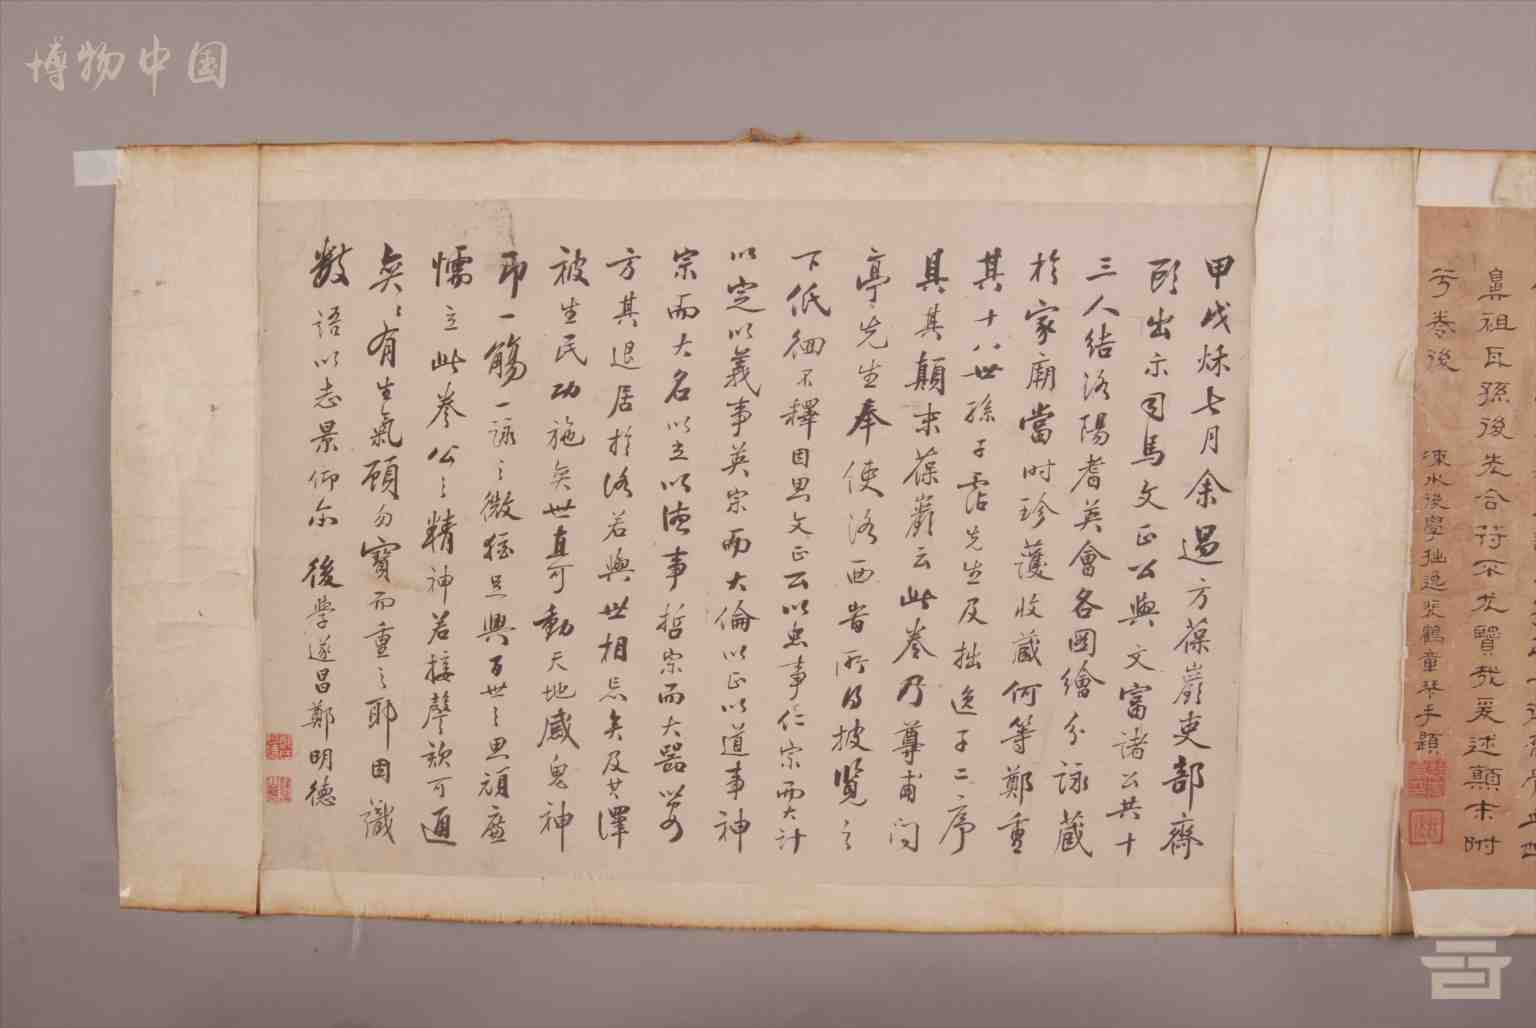 博物中国
鼻祖耳孫後先合符不尤寶哉爰述顛末附
於卷後
涑水後學拙逸裴鶴童琴手題
甲戌秋七月余過方葆巖吏部齋
頭出示司馬文正公與文富諸公共十
三人結洛陽耆英會各圖繪分詠藏
於家廟當時珍護收藏何等鄭重
其十八世孫子霑先生及拙逸子二序
具其顛末葆巖云此卷乃尊甫問
亭先生奉使洛西省所得披覽之
下低徊不釋因思文正公以忠事仁宗而大計
以定以義事英宗而大倫以正以道事神
宗而大名以立以德事哲宗而大器以安
方其退居於洛若與世相忘矣及其澤
被生民功施矣世直可動天地感鬼神
即一觴一詠之微猶足興百世之思頑廉
懦立此卷公之精神若接聲欬可通
矣之有生氣顧勿寶而重之耶因識
數語以志景仰尔 後學遂昌鄭明德